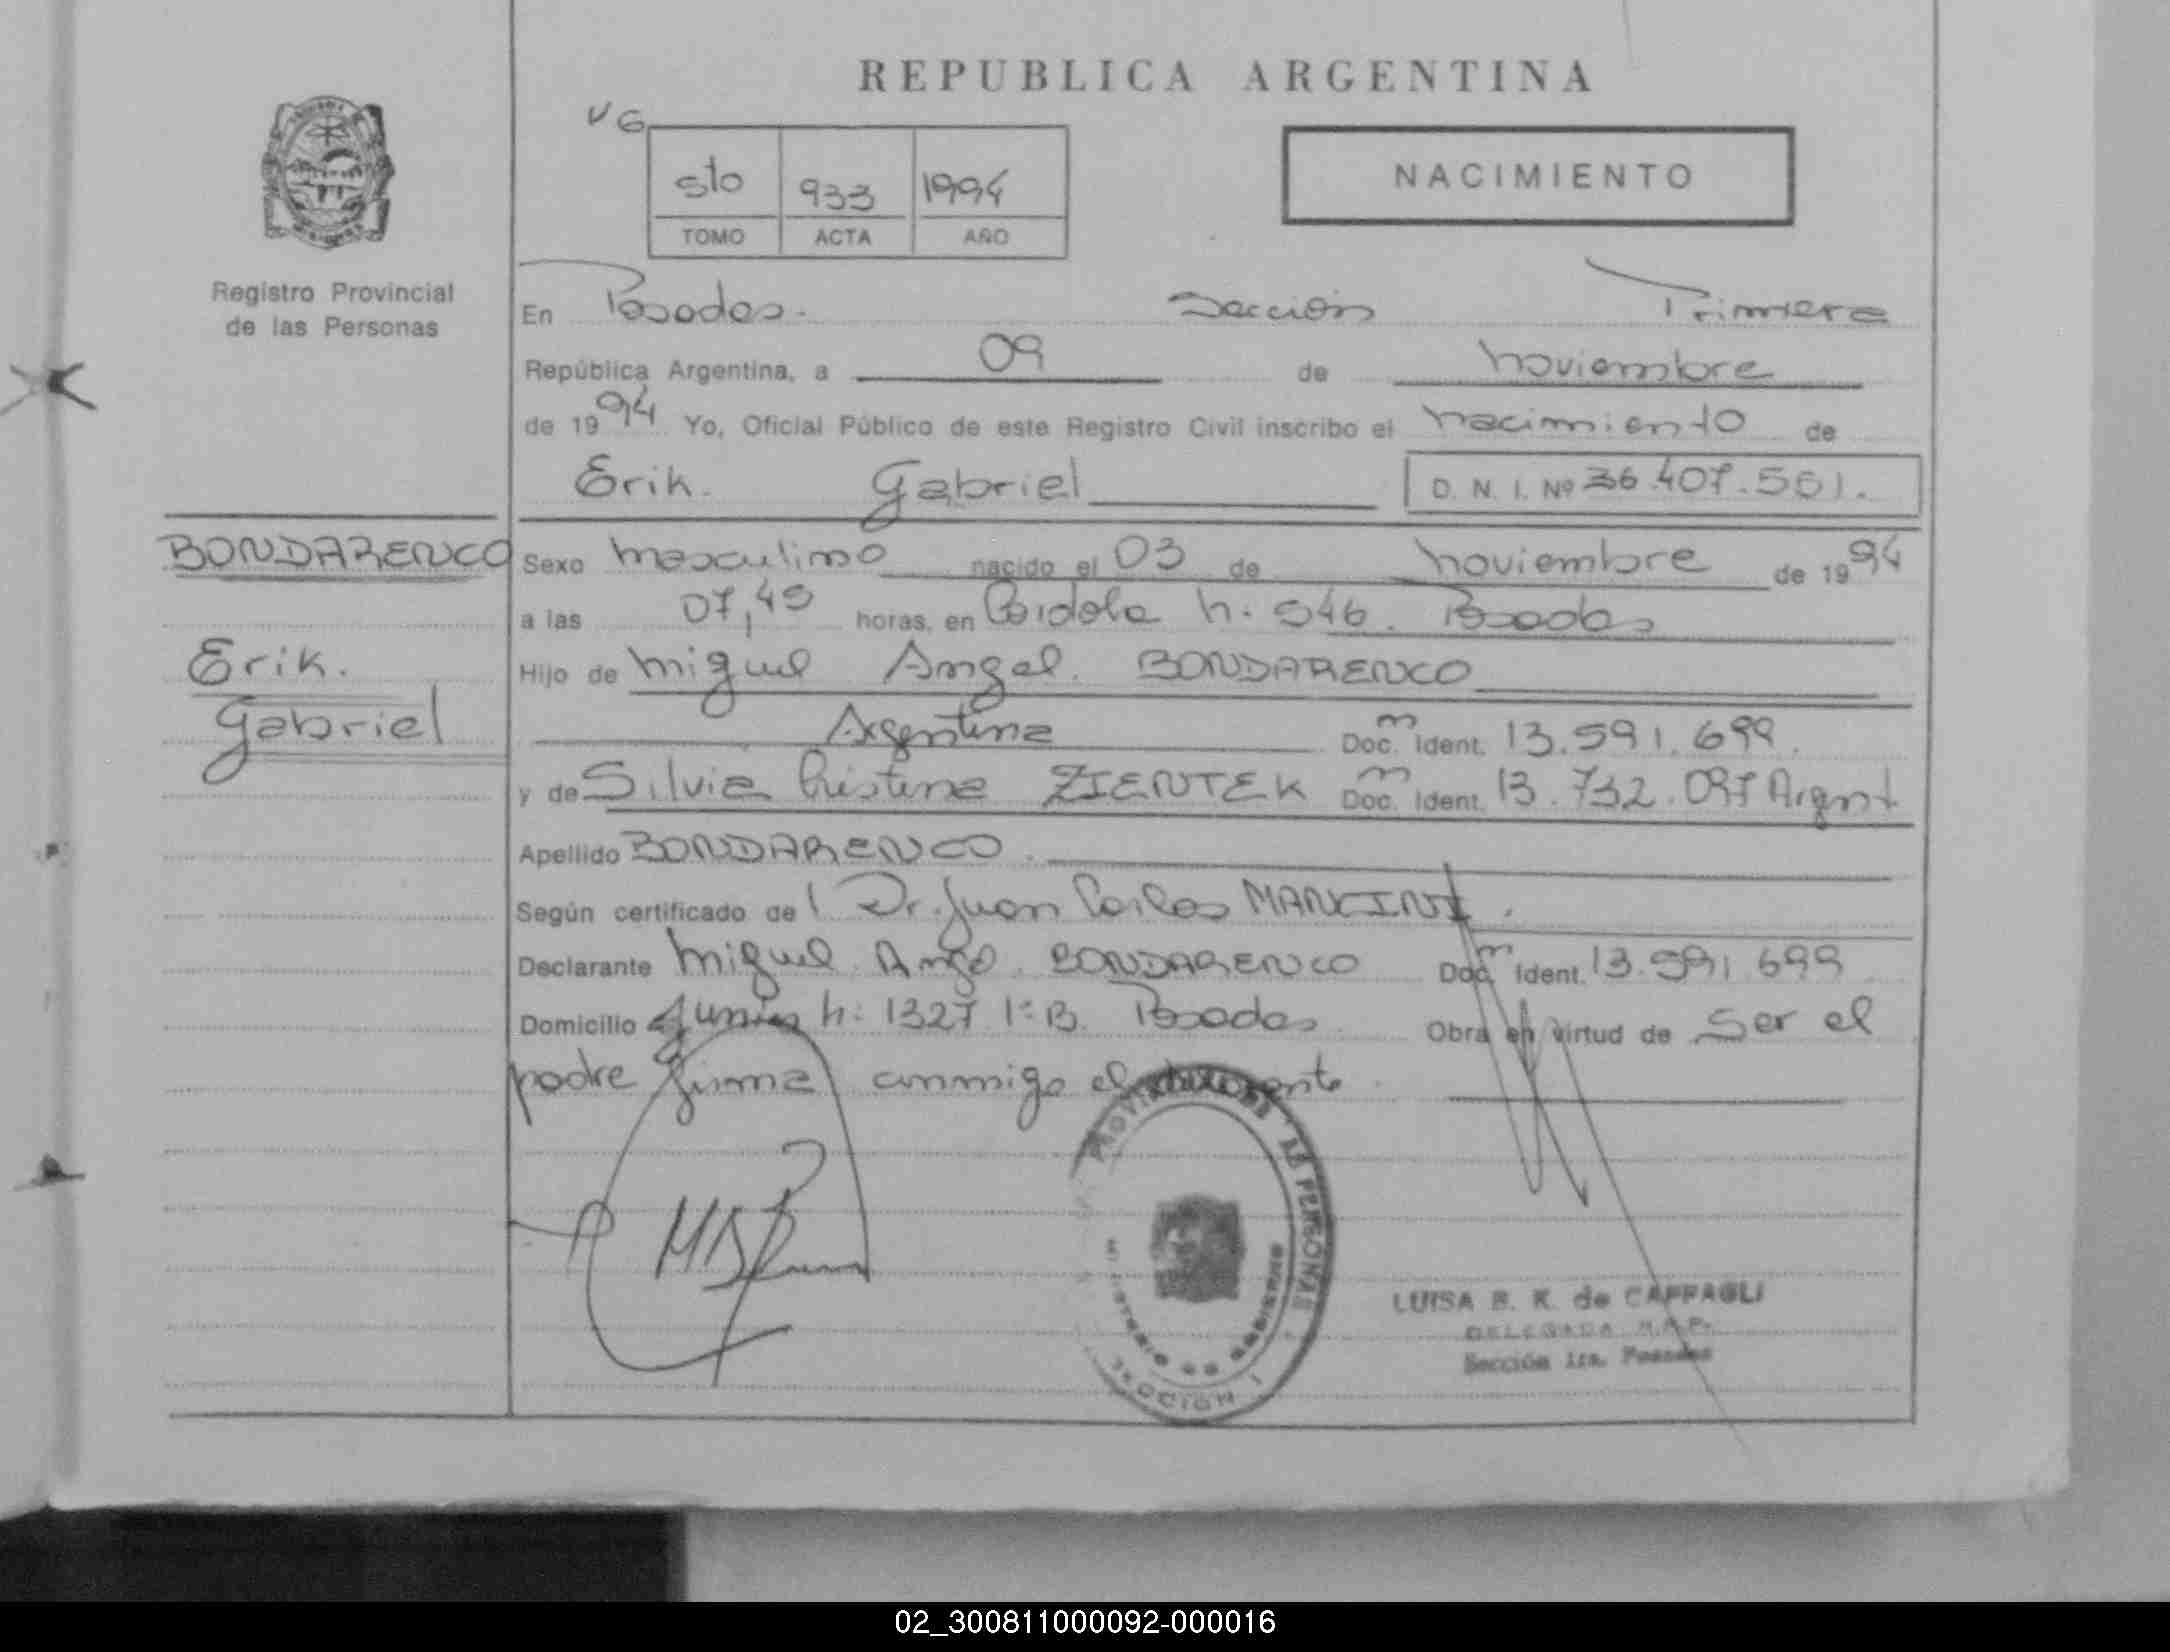 REPUBLICA ARGENTINA
NACIMIENTO
5to 933 1994
TOMO ACTA AÑO
Registro Provincial
de las Personas
En Posadas. Sección Primera
República Argentina, a 09 de noviembre
de 1994 Yo, Oficial Público de este Registro Civil inscribo el nacimiento de
Erik Gabriel D. N. I. Nº 36.407.561.
BONDARENCO
Erik.
Gabriel
Sexo masculino nacido el 03 de noviembre de 1994
a las 07,45 horas, en Córdoba n. 546. Posadas
Hijo de Miguel Angel BONDARENCO
Argentina Doc. Ident. 13.591.699.
y de Silvia Cristina ZIENTEK Doc. Ident. 13.732.097 Argent
Apellido BONDARENCO.
Según certificado del Dr. Juan Carlos MANCINI.
Declarante Miguel Angel BONDARENCO Doc. Ident. 13.591.699
Domicilio Junin n: 1327 1º B. Posadas Obra en virtud de ser el
padre firma conmigo el
LUISA B. K. de CAFFAGLI
DELEGADA R.P.P.
Sección 1ra. Posadas
02_300811000092-000016